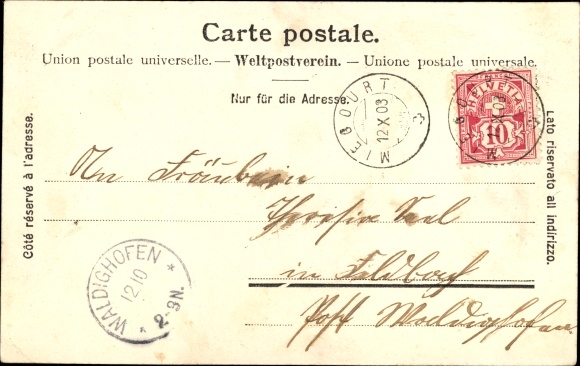 Carte postale.
Union postale universelle. — Weltpostverein. — Unione postale universale.
Nur für die Adresse.
MIEGOURT
12 X 03
HELVETIA
10
Côté réservé à l'adresse.
Lato riservato all indirizzo.
An Fräulein
Theresia Saal
in Feldbach
Post Waldighofen
WALDIGHOFEN
12.10
2-3N.